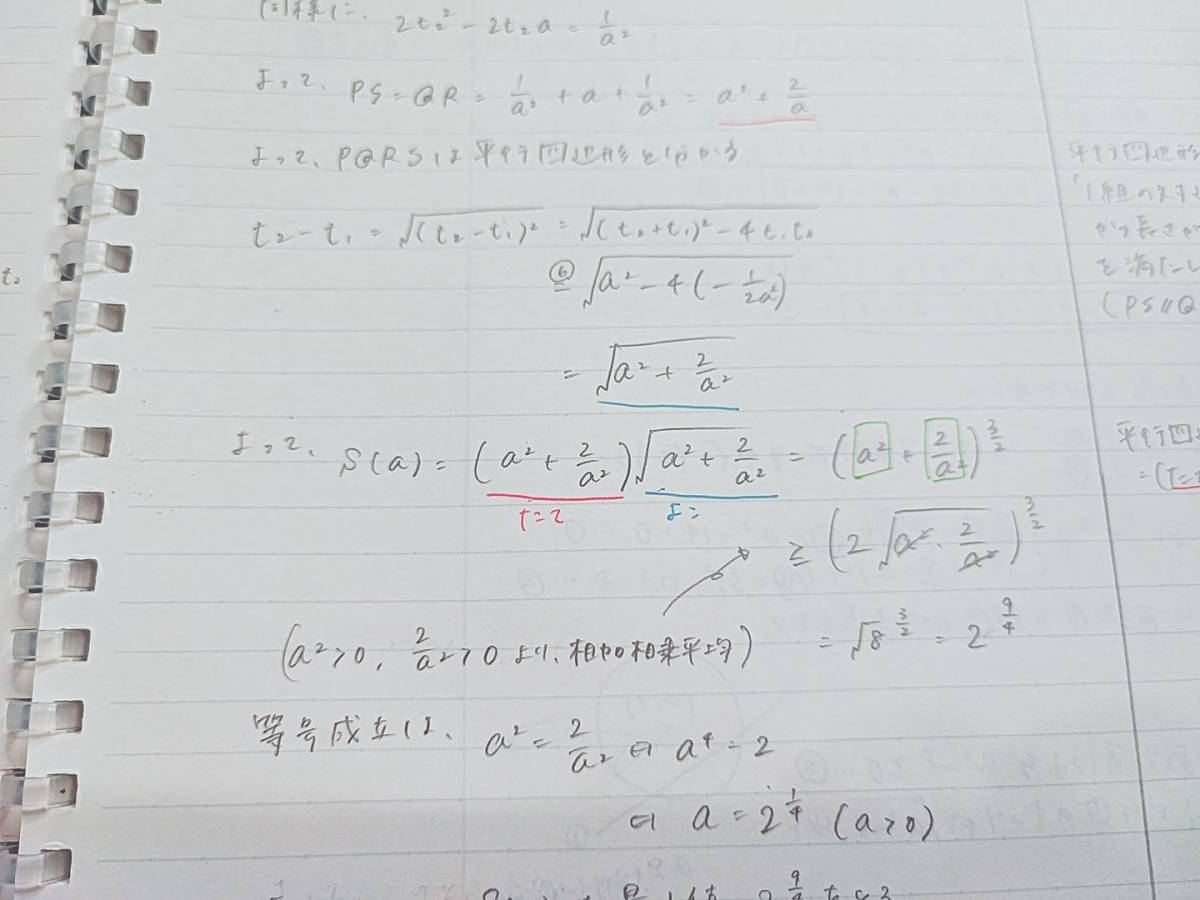 同様に、 2t₂² - 2t₂a = 1/a²
よって、 PS = QR = 1/a² + a + 1/a² = a² + 2/a
よって、PQRSは平行四辺形とわかる
t₂ - t₁ = √((t₂ - t₁)²) = √((t₂ + t₁)² - 4t₁t₂)
⑥= √(a² - 4(-1/2a²))
= √(a² + 2/a²)
よって、 S(a) = (a² + 2/a²)√(a² + 2/a²) = (a² + 2/a²)^(3/2)
たて よこ
≧ (2√(a²・2/a²))^(3/2)
(a²>0, 2/a²>0 より、相加相乗平均) = √8^(3/2) = 2^(9/4)
等号成立は、 a² = 2/a² ⇔ a⁴ = 2
⇔ a = 2^(1/4) (a>0)
平行四辺形
「1組の対
かつ長さが
を満たし
(PS∥Q
平行四
=(たて
t₂